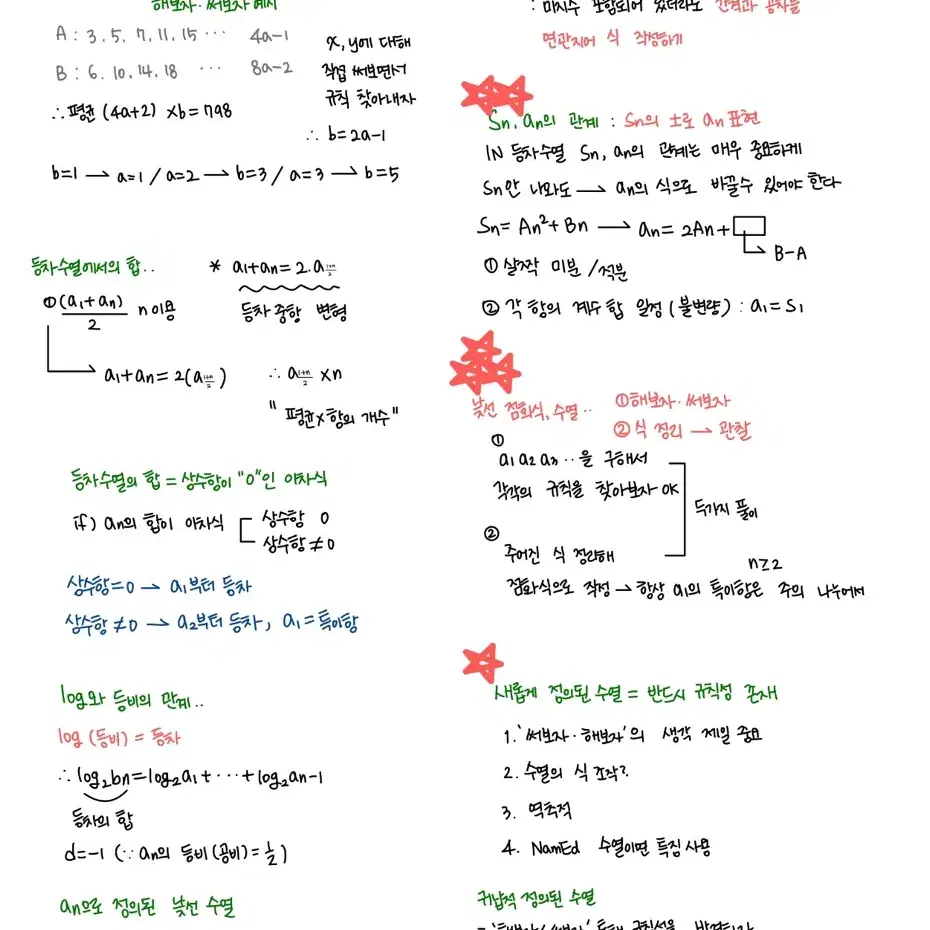 해보자·써보자 예시
A : 3. 5. 7, 11, 15 ··· 4a-1
B : 6. 10, 14, 18 ··· 8a-2
x, y에 대해
직접 써보면서
규칙 찾아내자
∴ 평균 (4a+2) ×b = 798
∴ b=2a-1
b=1 → a=1 / a=2 → b=3 / a=3 → b=5
등차수열에서의 합..
* a1+an = 2.a 1+n/2
등차 중항 변형
① (a1+an)/2 n 이용
a1+an = 2(a 1+n/2)
∴ a 1+n/2 ×n
"평균×항의 개수"
등차수열의 합 = 상수항이 "0"인 이차식
if) an의 합이 이차식
상수항 0
상수항≠0
상수항=0 → a1부터 등차
상수항≠0 → a2부터 등차, a1=특이항
log와 등비의 관계..
log (등비) = 등차
∴ log2bn=log2a1+···+log2an-1
등차의 합
d=-1 (∵ an의 등비(공비)=1/2)
an으로 정의된 낯선 수열
: 미지수 포함되어 있더라도 간격과 공차를
연관지어 식 작성하기
Sn, an의 관계 : Sn의 식으로 an 표현
IN 등차수열 Sn, an의 관계는 매우 중요하게
Sn안 나와도 → an의 식으로 바꿀수 있어야 한다
Sn= An²+Bn → an= 2An+□
B-A
① 살짝 미분/적분
② 각 항의 계수 합 일정 (불변량) : a1=S1
낯선 점화식, 수열..
① 해보자·써보자
② 식 정리 → 관찰
①
a1 a2 a3 ··을 구해서
각각의 규칙을 찾아보자 OK
두가지 풀이
②
주어진 식 정리해
n≥2
점화식으로 작성 → 항상 a1의 특이항은 주의 나누어서
새롭게 정의된 수열 = 반드시 규칙성 존재
1. '써보자·해보자'의 생각 제일 중요
2. 수열의 식 조작?
3. 역추적
4. NamEd 수열이면 특징 사용
귀납적 정의된 수열